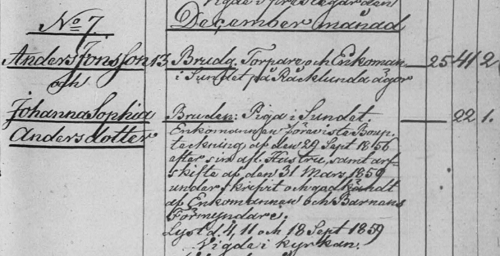 Vigde i prestegården
No 7. December månad
Anders Jonsson 13 Brudg. Torpare och Enkoman 25 41 2.
och i Sundet på Räcklunda ägor
Johanna Sophia Bruden: Piga i Sundet. 22 1.
Andersdotter Enkomannen företedde Boupp-
teckning af den 29 Sept 1856
efter sin afl. Hustru, samt arf-
skifte af den 31 Mars 1859
underskrifvit och godkändt
af Enkomannen och Barnens
Förmyndare.
Lyst d. 4, 11 och 18 Sept 1859
Vigde i kyrkan.